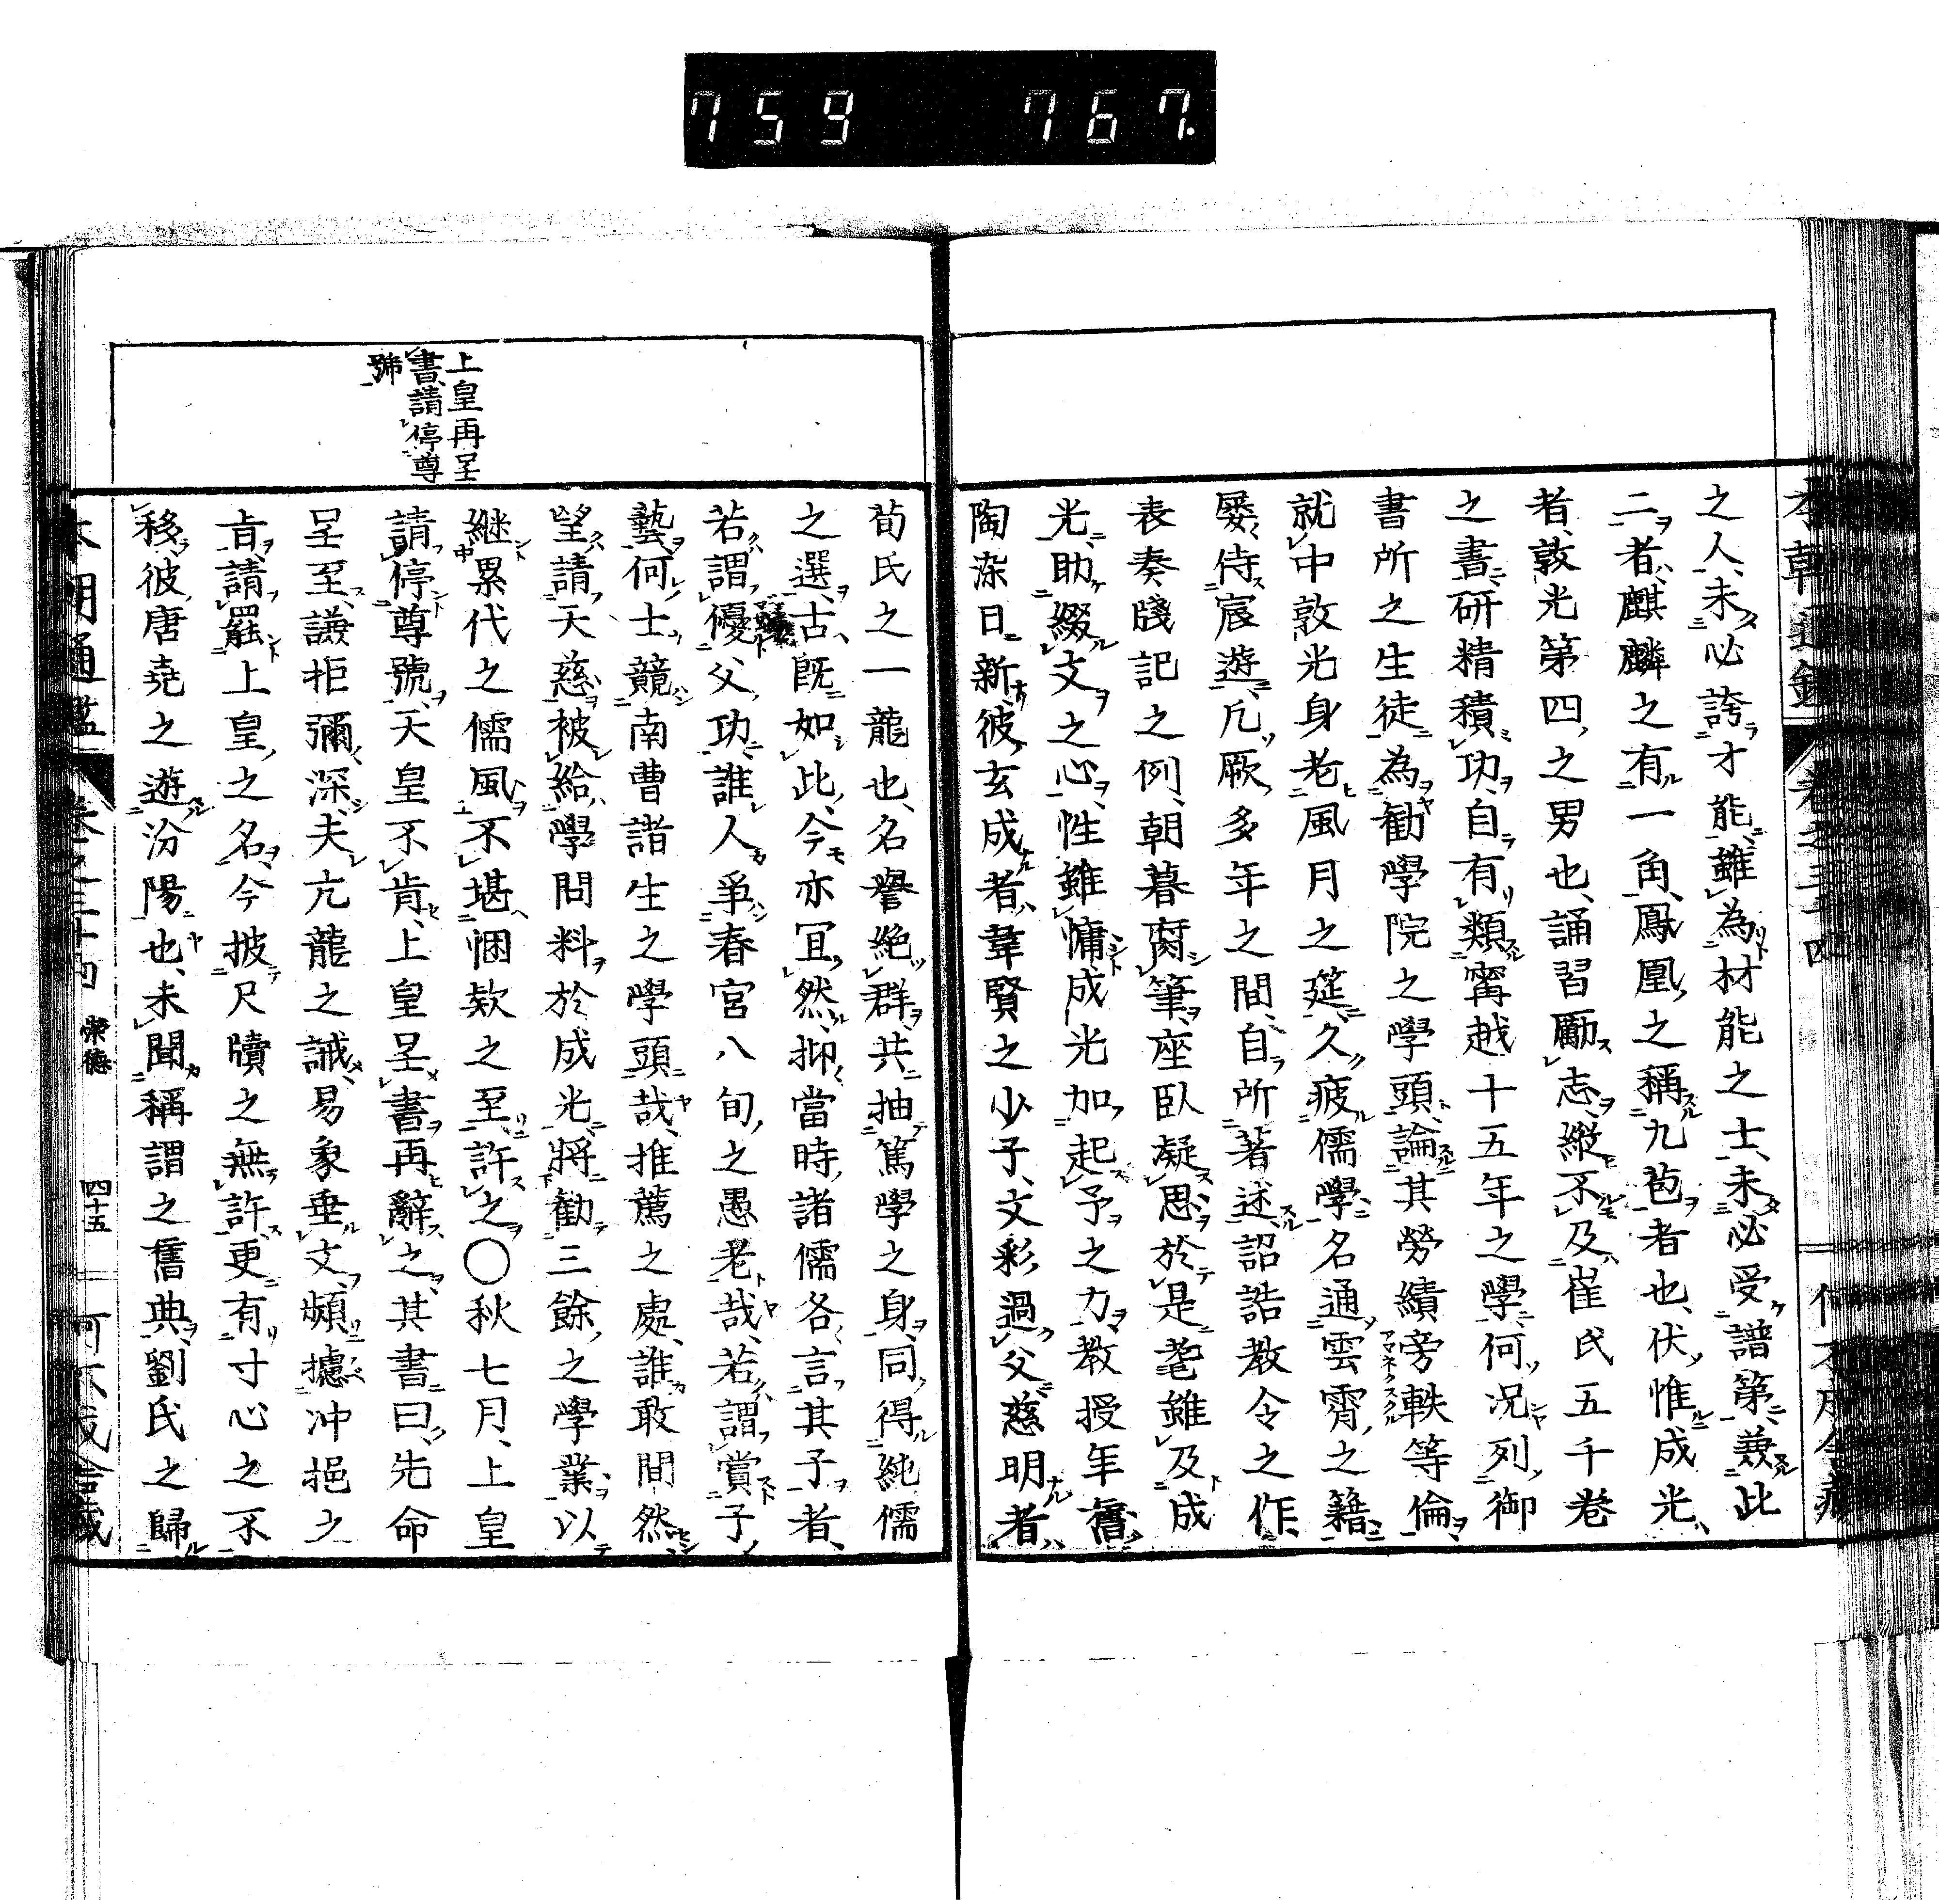 759 767.
本朝通鑑 卷之三十四
之人、未必誇才能、雖為材能之士、未必受譜第、兼此
二者、麒麟之有一角、鳳凰之稱九苞者也、伏惟成光
者、敦光第四之男也、誦習勵志、縱不及崔氏五千卷
之書、研精積功、自有類甯越十五年之學、何況列御
書所之生徒、為勸學院之學頭、論其勞績旁軼等倫、
就中敦光身老風月之筵、久疲儒學、名通雲霄之籍、
屡侍宸遊、凡厥多年之間、自所著述、詔誥教令之作、
表奏牋記之例、朝暮腐筆、座臥凝思、於是耄雖及成
光、助綴文之心、性雖慵成光加起予之力、教授年舊
陶染日新、彼玄成者韋賢之少子、文彩過父、慈明者、
荀氏之一龍也、名譽絶群、共抽篤學之身、同得純儒
之選、古既如此、今亦冝然、抑當時諸儒各言其子者、
若謂優父功、誰人爭春宮八旬之愚老哉、若謂賞子
藝、何士競南曹諸生之學頭哉、推薦之處、誰敢間然
望請天慈、被給學問料於成光、將勸三餘之學業、以
継累代之儒風、不堪悃欵之至、許之〇秋七月、上皇
請停尊號、天皇不肯、上皇呈書再辭之、其書曰、先命
呈至、謙拒彌深、夫亢龍之誡、易象垂文、頻攄冲挹之
㫖、請罷上皇之名、今披尺牘之無許、更有寸心之不
移、彼唐堯之遊汾陽也、未聞稱謂之舊典、劉氏之歸
上皇再呈
書請停尊
號
本朝通鑑 卷之三十四 崇德 四十五